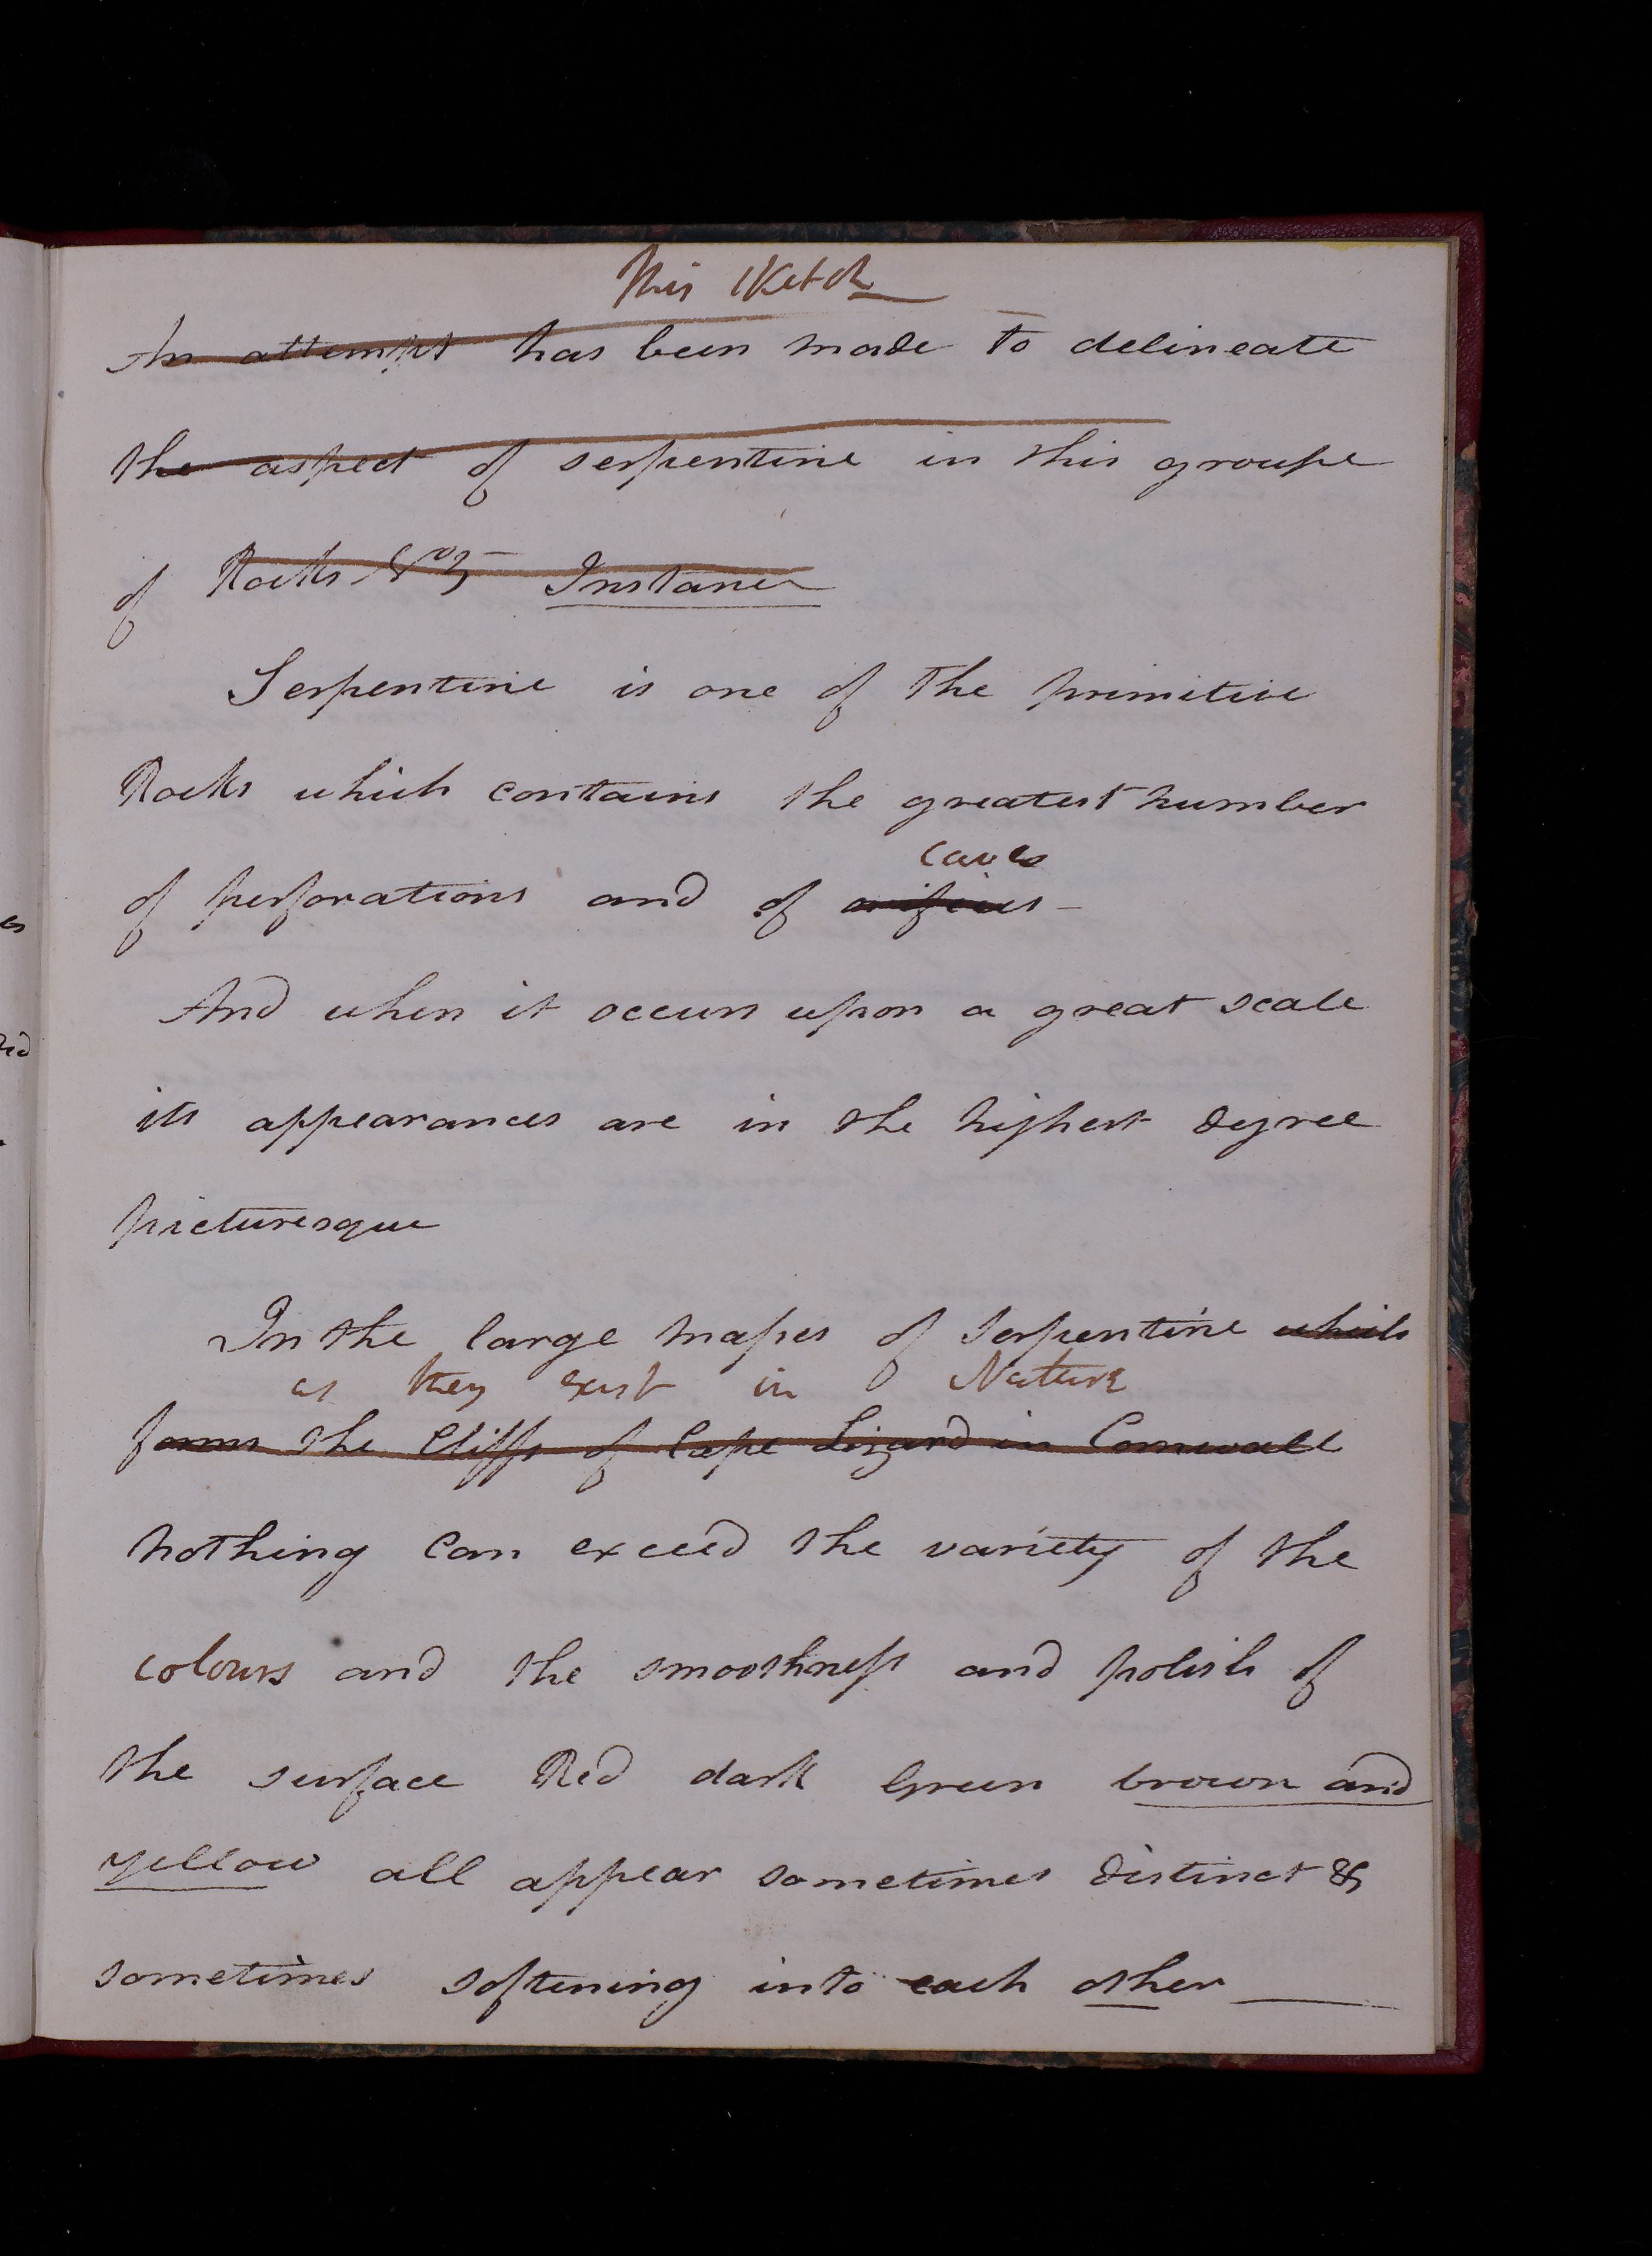 This sketch
An attempt has been made to delineate
the aspect of serpentine in this groupe
of Rocks No 3 Instance
Serpentine is one of the primitive
Rocks which contains the greatest number
caves
of perforations and of orifices -
And when it occurs upon a great scale
its appearances are in the highest degree
picturesque
In the large masses of Serpentine which
as they exist in Nature
forms the Cliffs of Cape Lizard in Cornwall
nothing can exceed the variety of the
colours and the smoothness and polish of
the surface Red dark Green brown and
yellow all appear sometimes distinct &
sometimes softening into each other